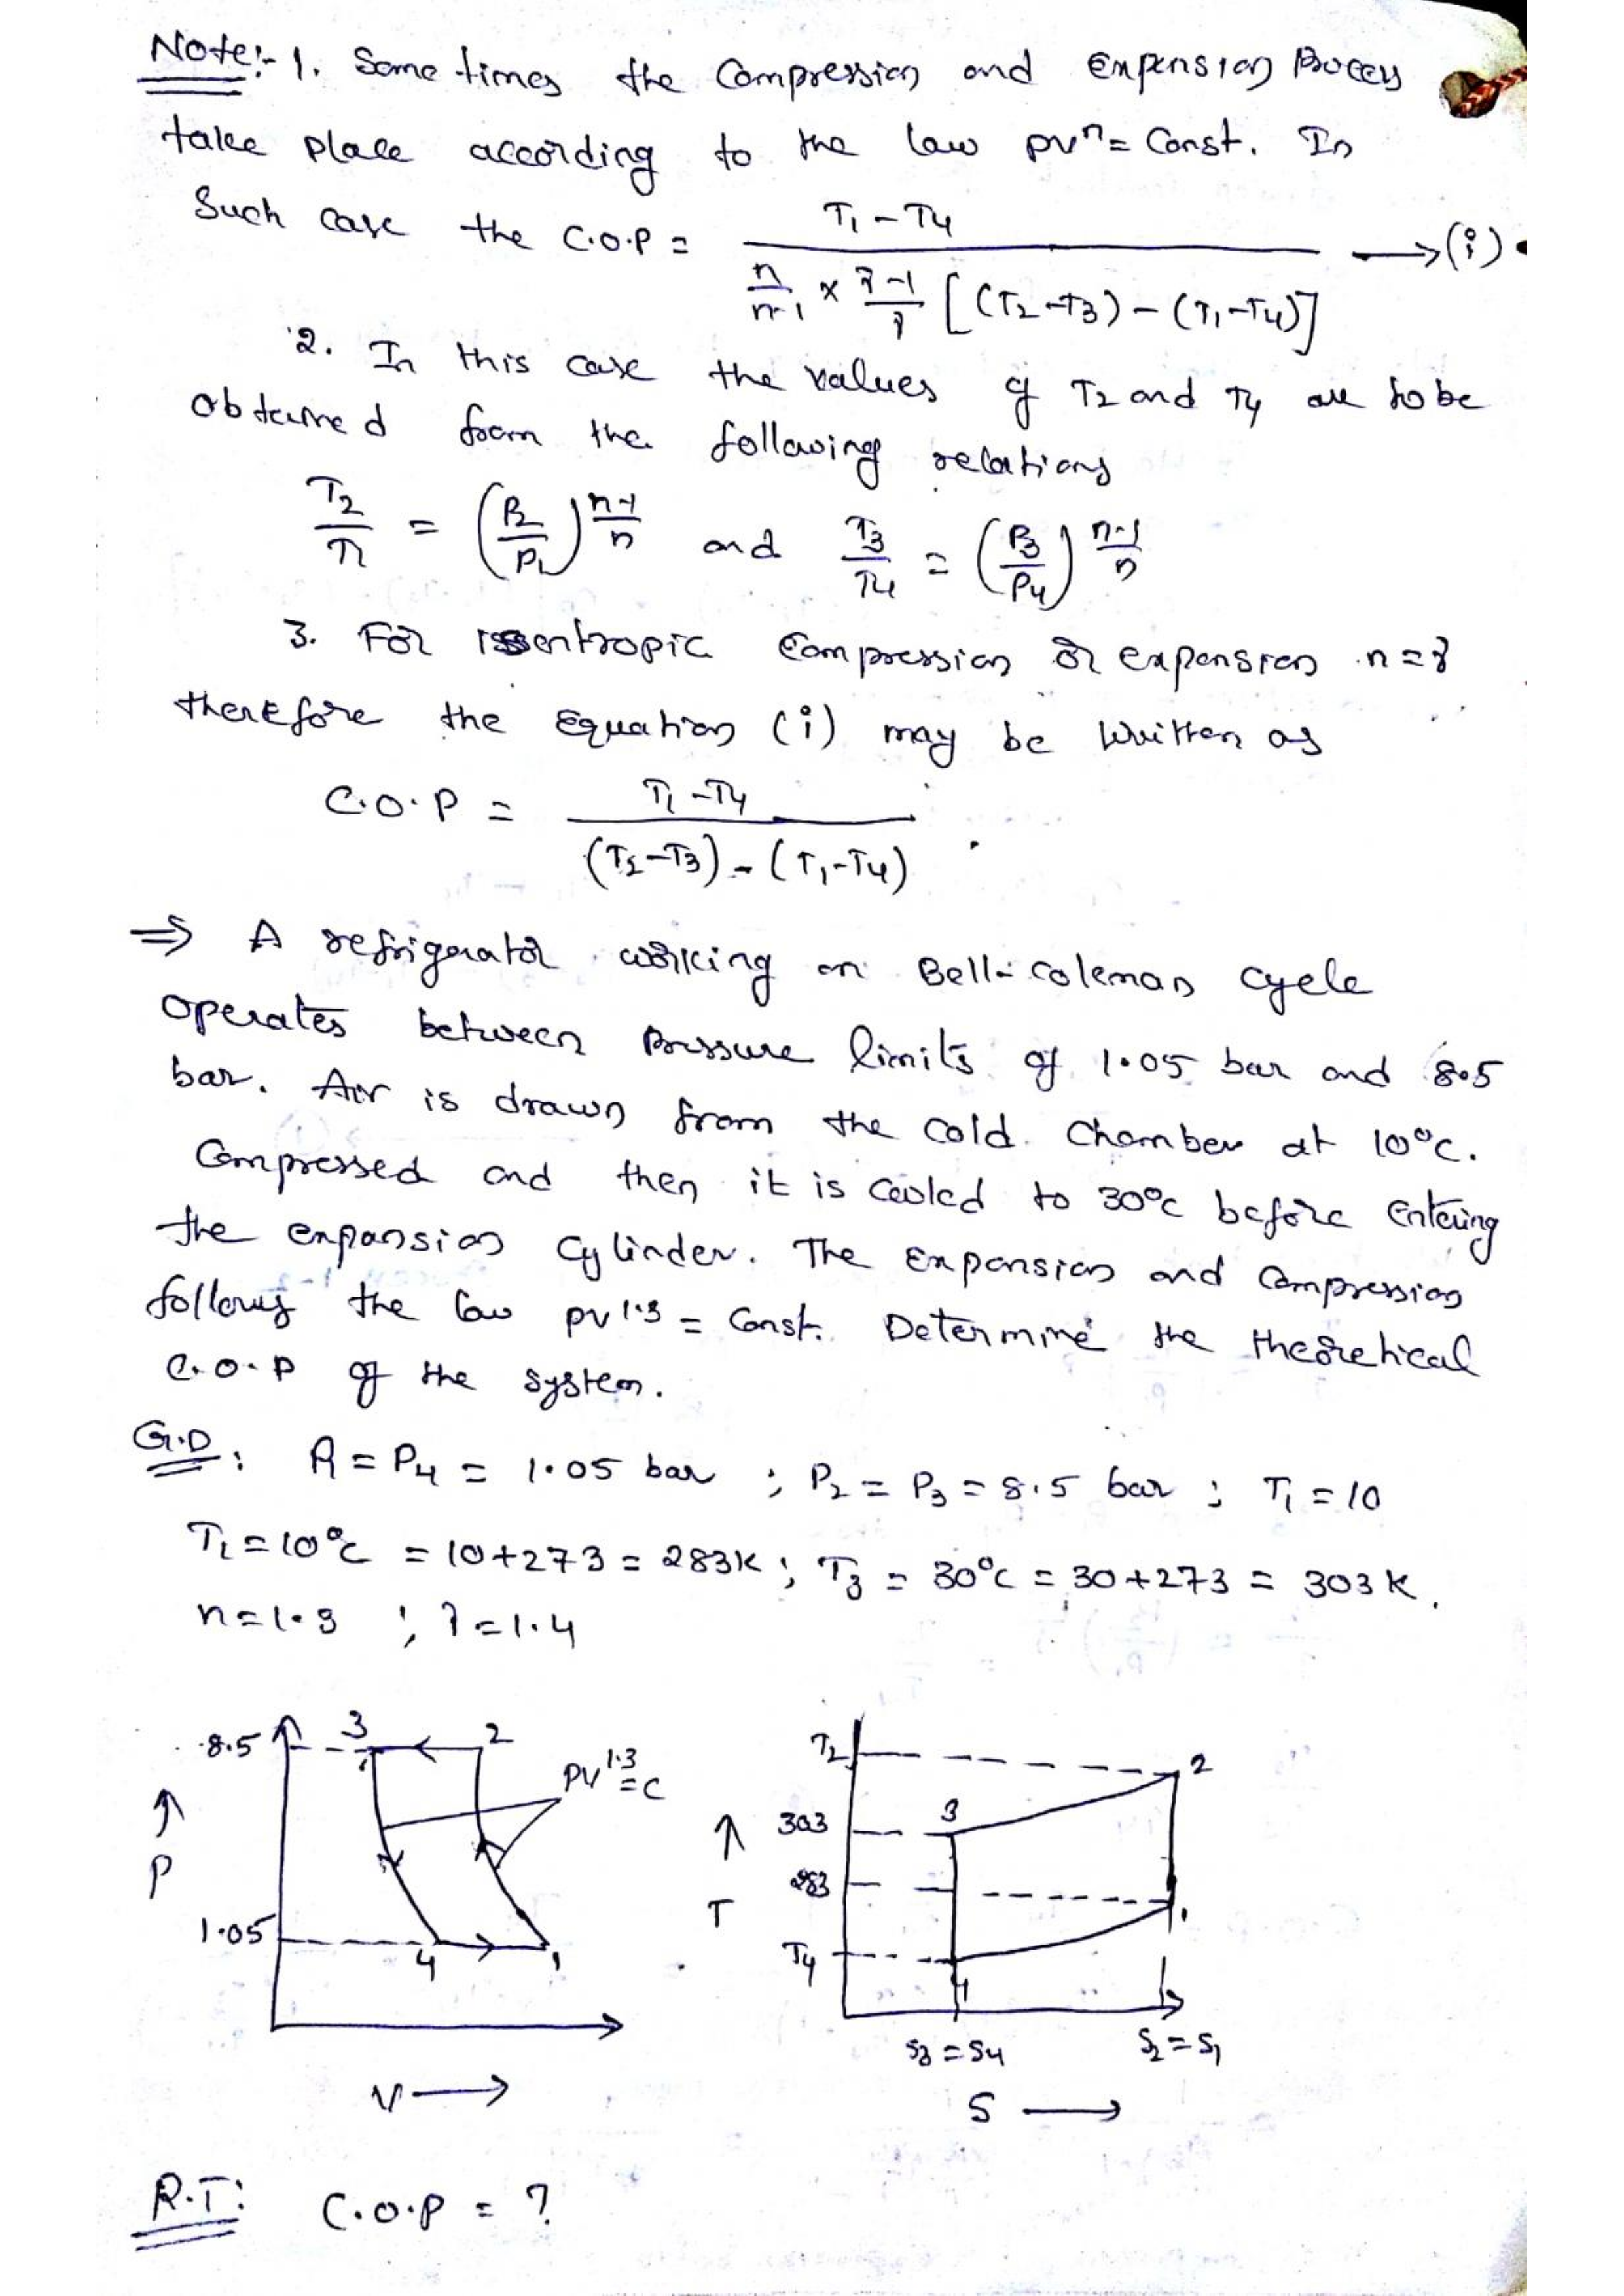 Note:- 1. Some times the Compression and Expension Process
take place according to the law pvⁿ = Const. In
Such case the C.O.P = (T₁ - T₄) / (n/(n-1) × (γ-1)/γ [(T₂-T₃) - (T₁-T₄)]) → (i)
2. In this case the values of T₂ and T₄ are to be
obtained from the following relations
T₂/T₁ = (P₂/P₁)^((n-1)/n) and T₃/T₄ = (P₃/P₄)^((n-1)/n)
3. For isentropic Compression or expension n = γ
therefore the Equation (i) may be written as
C.O.P = (T₁ - T₄) / ((T₂-T₃) - (T₁-T₄))
⇒ A refrigerator working on Bell-coleman cycle
operates between Pressure limits of 1.05 bar and 8.5
bar. Air is drawn from the cold Chamber at 10°C.
Compressed and then it is cooled to 30°C before Entering
the expansion cylinder. The Expansion and Compression
follows the law pv^1.3 = Const. Determine the theoretical
C.O.P of the system.
G.D: P₁ = P₄ = 1.05 bar ; P₂ = P₃ = 8.5 bar ; T₁ = 10
T₁ = 10°C = 10+273 = 283K ; T₃ = 30°C = 30+273 = 303K.
n = 1.3 ; γ = 1.4
8.5 3 2
PV^1.3 = C
↑
P
1.05
4 1
V →
T₂ 2
303 3
↑
283
T 1
T₄
4
S₃ = S₄ S₂ = S₁
S →
R.T: C.O.P = ?